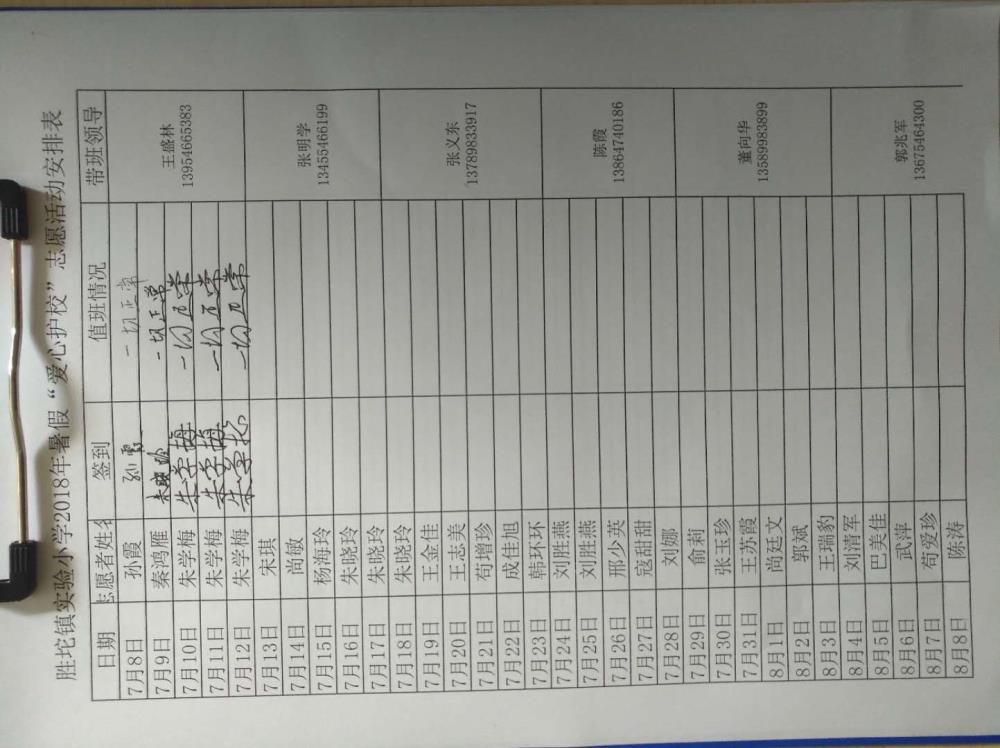 胜坨镇实验小学2018年暑假“爱心护校”志愿活动安排表
日期 志愿者姓名 签到 值班情况 带班领导
7月8日 孙霞 孙霞 一切正常 王盛林 13954665383
7月9日 秦鸿雁 朱晓玲 一切正常
7月10日 朱学梅 朱学梅 一切正常
7月11日 朱学梅 朱学梅 一切正常
7月12日 朱学梅 朱学梅 一切正常
7月13日 宋琪 张明学 13455466199
7月14日 尚敏
7月15日 杨海玲
7月16日 朱晓玲
7月17日 朱晓玲
7月18日 朱晓玲 张义东 13789833917
7月19日 王金佳
7月20日 王志美
7月21日 荀增珍
7月22日 成佳旭
7月23日 韩环环
7月24日 刘胜燕 陈霞 13864740186
7月25日 刘胜燕
7月26日 邢少英
7月27日 寇甜甜
7月28日 刘娜
7月29日 俞莉 董向华 13589983899
7月30日 张玉珍
7月31日 王苏霞
8月1日 尚廷文
8月2日 郭斌
8月3日 王瑞豹
8月4日 刘清军 郭兆军 13675464300
8月5日 巴美佳
8月6日 武萍
8月7日 荀爱珍
8月8日 陈涛